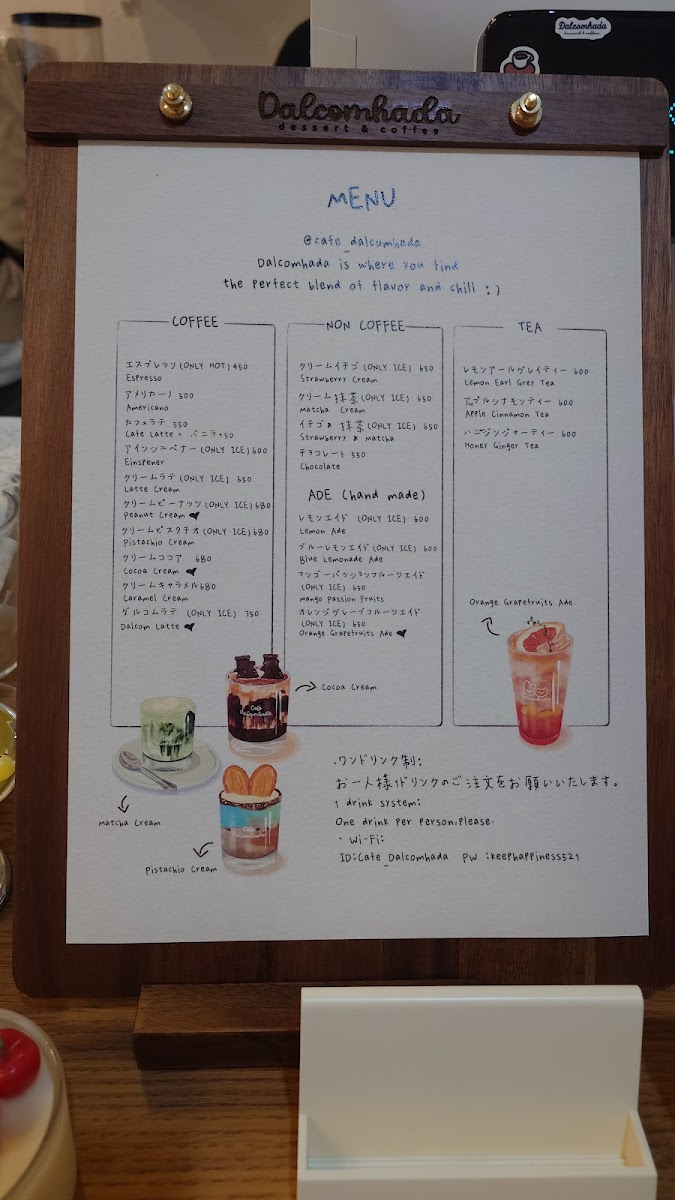 Dalcomhada
dessert & coffee
Dalcomhada
dessert & coffee
MENU
@cafe_dalcomhada
Dalcomhada is where you find
the perfect blend of flavor and chill :)
COFFEE
エスプレッソ (ONLY HOT) 450
Espresso
アメリカーノ 500
Americano
カフェラテ 550
Cafe Latte + バニラ+50
アインシュペナー (ONLY ICE) 600
Einspener
クリームラテ (ONLY ICE) 650
Latte Cream
クリームピーナッツ (ONLY ICE) 680
Peanut Cream ♥
クリームピスタチオ (ONLY ICE) 680
Pistachio Cream
クリームココア 680
Cocoa Cream ♥
クリームキャラメル 680
Caramel Cream
ダルコムラテ (ONLY ICE) 750
Dalcom Latte ♥
NON COFFEE
クリームイチゴ (ONLY ICE) 650
Strawberry Cream
クリーム抹茶 (ONLY ICE) 650
Matcha Cream
イチゴ x 抹茶 (ONLY ICE) 650
Strawberry x Matcha
チョコレート 550
Chocolate
ADE (hand made)
レモンエイド (ONLY ICE) 600
Lemon Ade
ブルーレモンエイド (ONLY ICE) 600
Blue Lemonade Ade
マンゴーパッションフルーツエイド
(ONLY ICE) 650
Mango Passion Fruits
オレンジグレープフルーツエイド
(ONLY ICE) 650
Orange Grapefruits Ade ♥
TEA
レモンアールグレイティー 600
Lemon Earl Grey Tea
アップルシナモンティー 600
Apple Cinnamon Tea
ハニジンジャーティー 600
Honey Ginger Tea
Orange Grapefruits Ade
Cocoa Cream
Cafe
Dalcomhada
Matcha Cream
Pistachio Cream
・ワンドリンク制:
お一人様1ドリンクのご注文をお願いいたします。
1 drink system:
One drink per person,please.
・Wi-Fi:
ID:Cafe_Dalcomhada PW :keephappiness521